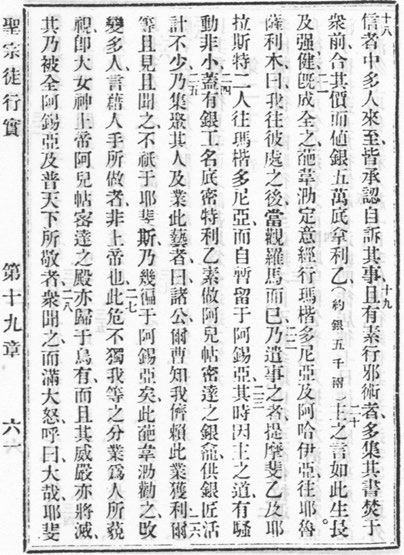 十八信者中多人來至、皆承認自訴其事、十九且有素行邪術者、多集其書焚于
衆前、合其價而値銀五萬底拿利乙、(約銀五千兩)二十主之言如此生長
及强健、旣成全之、葩韋泐定意經行瑪楷多尼亞及阿哈伊亞往耶魯
薩利木、曰、我往彼處之後、當觀羅馬而已、二二乃遣事之者、提摩斐乙及耶
拉斯特二人往瑪楷多尼亞、而自暫留于阿錫亞、二三其時因主之道有騷
動非小、二四蓋有銀工名底密特利乙、素做阿兒帖密達之銀龕、供銀匠活
計不少、二五乃集聚其人及業此藝者、曰、諸公、爾曹知我儕賴此業獲利、二六爾
等且見且聞之、不祇于耶斐斯、乃幾徧于阿錫亞矣、此葩韋泐勸之改
變多人、言藉人手所做者、非上帝也、二七此危不獨我等之分業爲人所藐
視、卽大女神上帝阿兒帖密達之殿、亦歸于烏有、而且其威嚴亦將滅、
其乃被全阿錫亞及普天下所敬者、二八衆聞之而滿大怒、呼曰、大哉耶斐
聖宗徒行實 第十九章 六